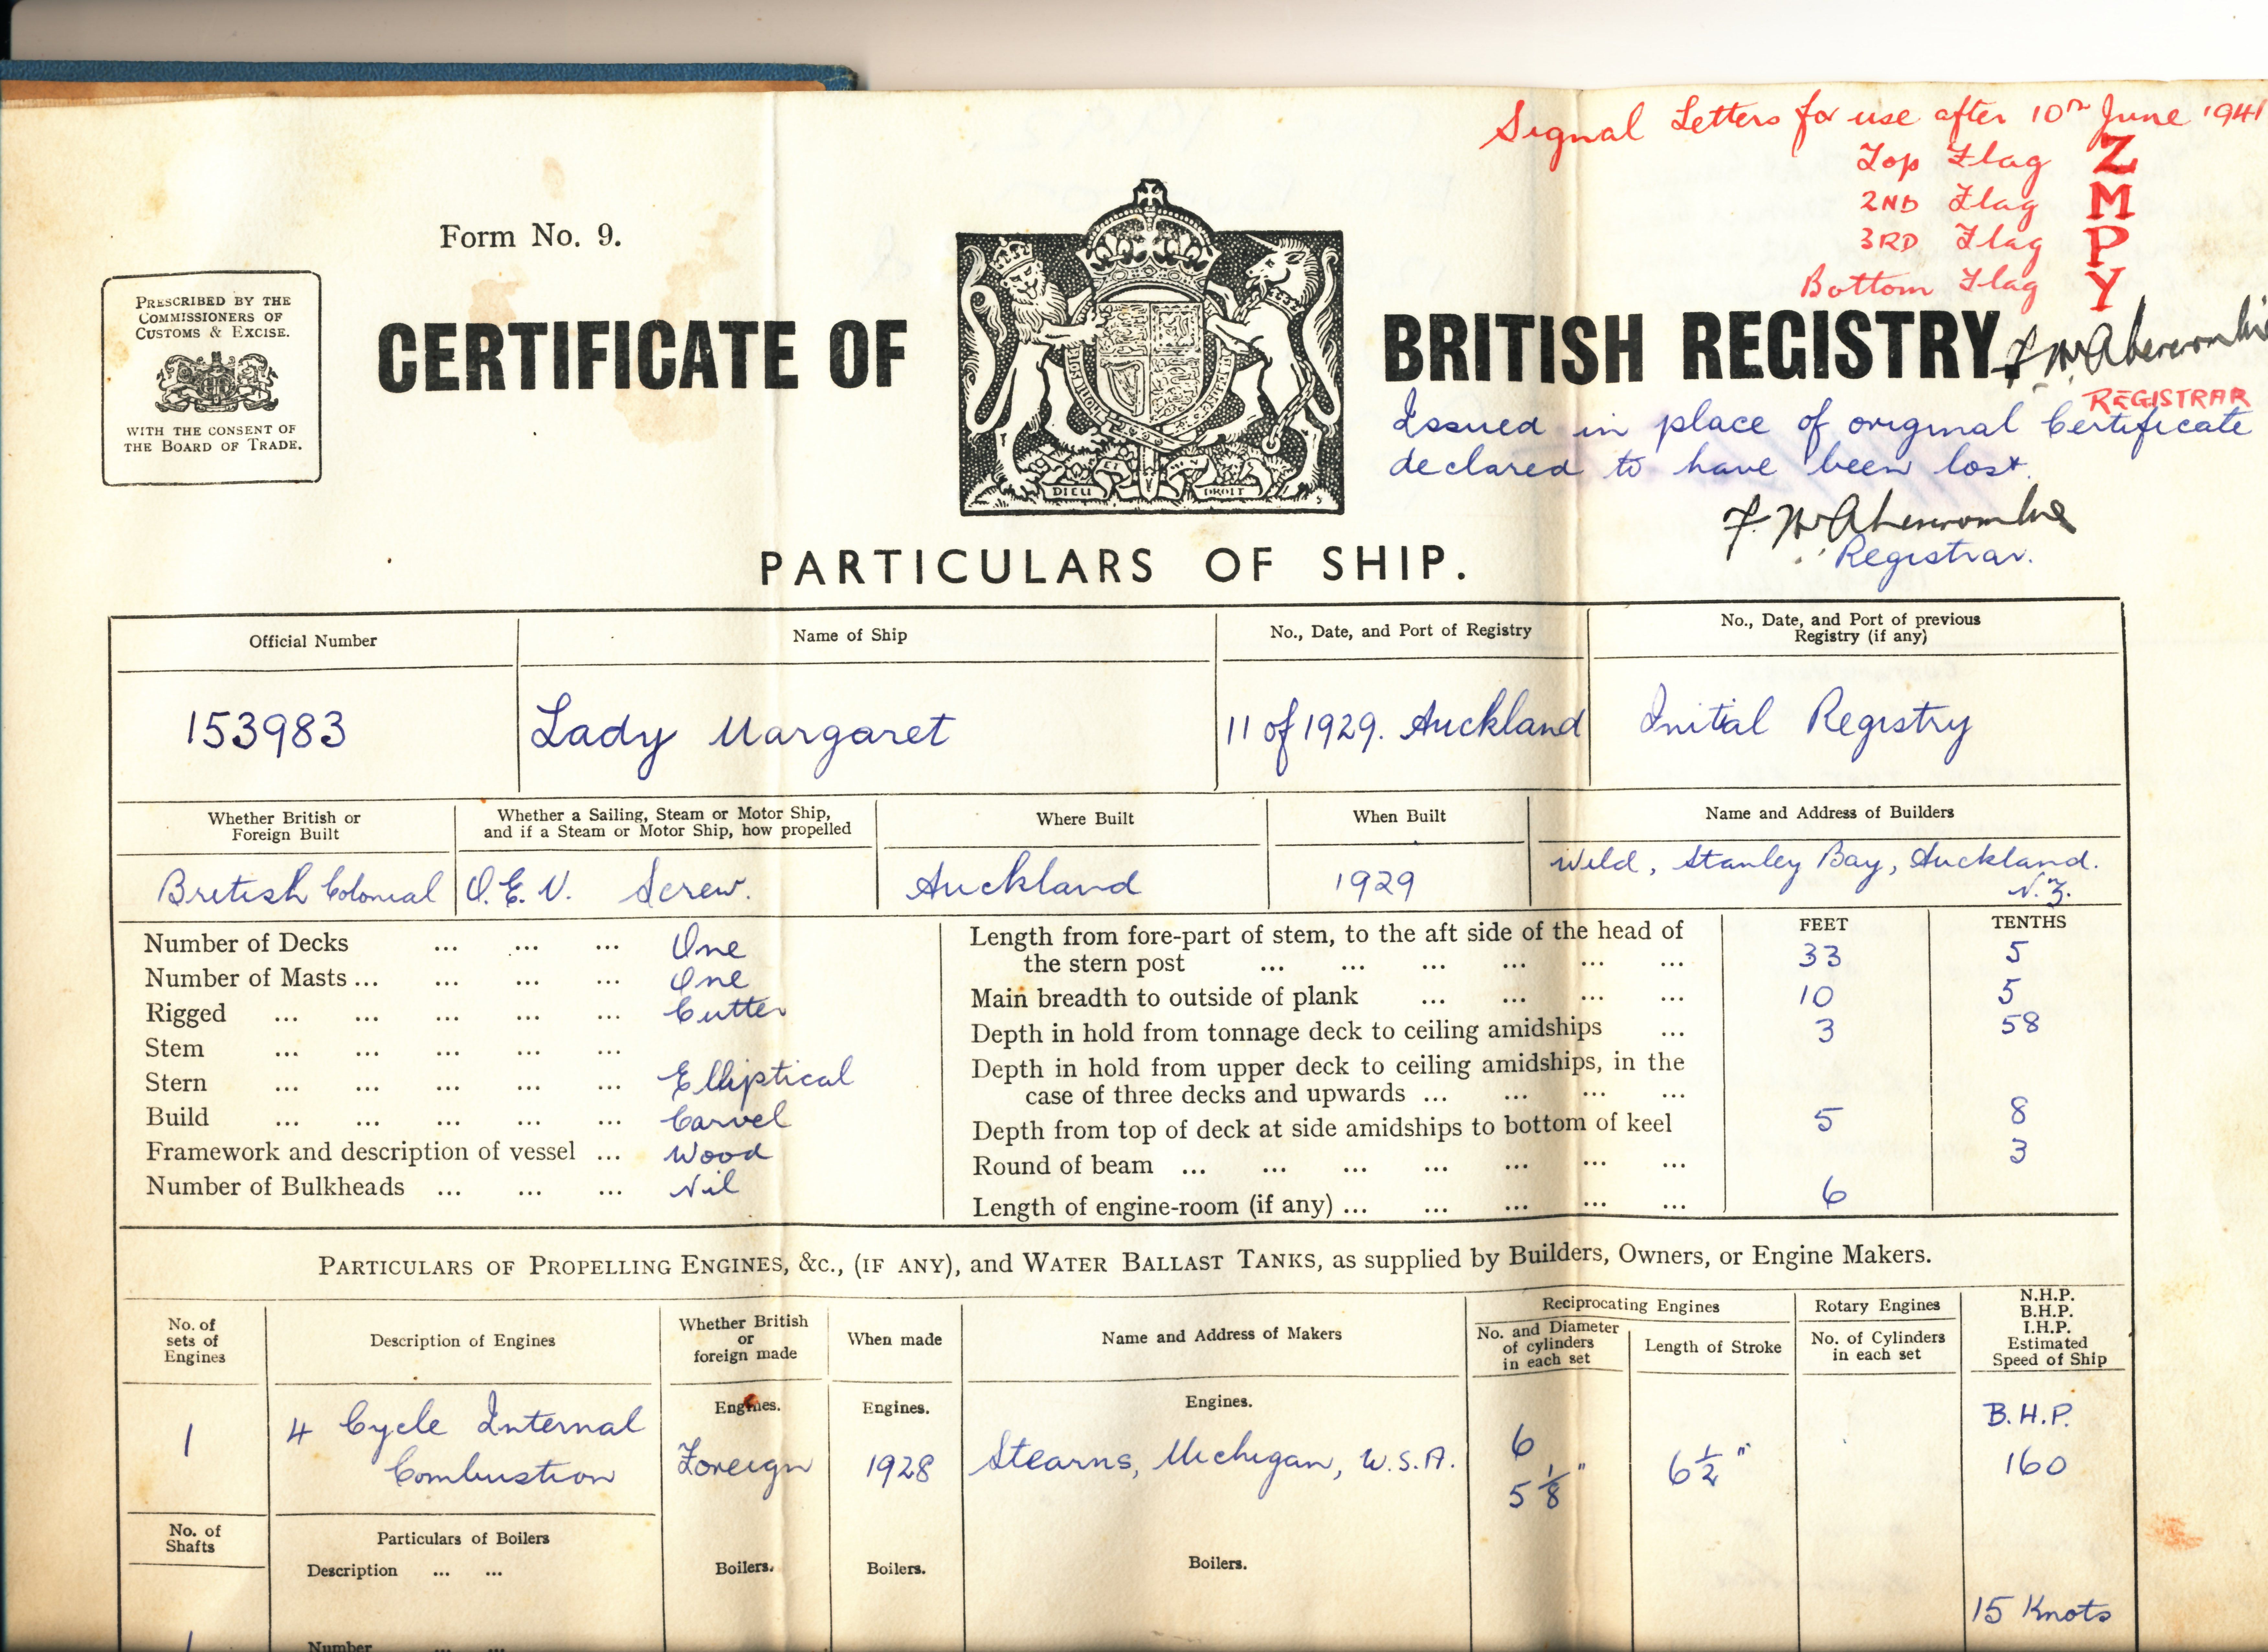 Signal Letters for use after 10th June 1941
Top Flag Z
2ND Flag M
3RD Flag P
Bottom Flag Y
Form No. 9.
PRESCRIBED BY THE
COMMISSIONERS OF
CUSTOMS & EXCISE.
WITH THE CONSENT OF
THE BOARD OF TRADE.
CERTIFICATE OF BRITISH REGISTRY
DIEU ET MON DROIT
F. McAbercrombie
REGISTRAR
Issued in place of original Certificate
declared to have been lost.
F. McAbercrombie
Registrar.
PARTICULARS OF SHIP.
Official Number Name of Ship No., Date, and Port of Registry No., Date, and Port of previous
Registry (if any)
153983 Lady Margaret 11 of 1929. Auckland Initial Registry
Whether British or
Foreign Built
Whether a Sailing, Steam or Motor Ship,
and if a Steam or Motor Ship, how propelled
Where Built When Built Name and Address of Builders
British Colonial O.E.V. Screw. Auckland 1929 Wild, Stanley Bay, Auckland.
N.Z.
Number of Decks ... ... ... One
Number of Masts ... ... ... ... One
Rigged ... ... ... ... ... Cutter
Stem ... ... ... ... ...
Stern ... ... ... ... ... Elliptical
Build ... ... ... ... ... Carvel
Framework and description of vessel ... Wood
Number of Bulkheads ... ... ... Nil
FEET TENTHS
Length from fore-part of stem, to the aft side of the head of
the stern post ... ... ... ... ... ... 33 5
Main breadth to outside of plank ... ... ... ... 10 5
Depth in hold from tonnage deck to ceiling amidships ... 3 58
Depth in hold from upper deck to ceiling amidships, in the
case of three decks and upwards ... ... ... ...
Depth from top of deck at side amidships to bottom of keel 5 8
Round of beam ... ... ... ... ... ... ... 3
Length of engine-room (if any) ... ... ... ... ... 6
PARTICULARS OF PROPELLING ENGINES, &C., (IF ANY), and WATER BALLAST TANKS, as supplied by Builders, Owners, or Engine Makers.
No. of
sets of
Engines
Description of Engines
Whether British
or
foreign made
When made
Name and Address of Makers
Reciprocating Engines
No. and Diameter
of cylinders
in each set
Length of Stroke
Rotary Engines
No. of Cylinders
in each set
N.H.P.
B.H.P.
I.H.P.
Estimated
Speed of Ship
Engines. Engines. Engines. B.H.P.
1 4 Cycle Internal
Combustion
Foreign 1928 Stearns, Michigan, U.S.A. 6
5 1/8" 6 1/2" 160
No. of
Shafts
Particulars of Boilers
Description ... ... Boilers. Boilers. Boilers.
15 Knots
1 Number ... ...